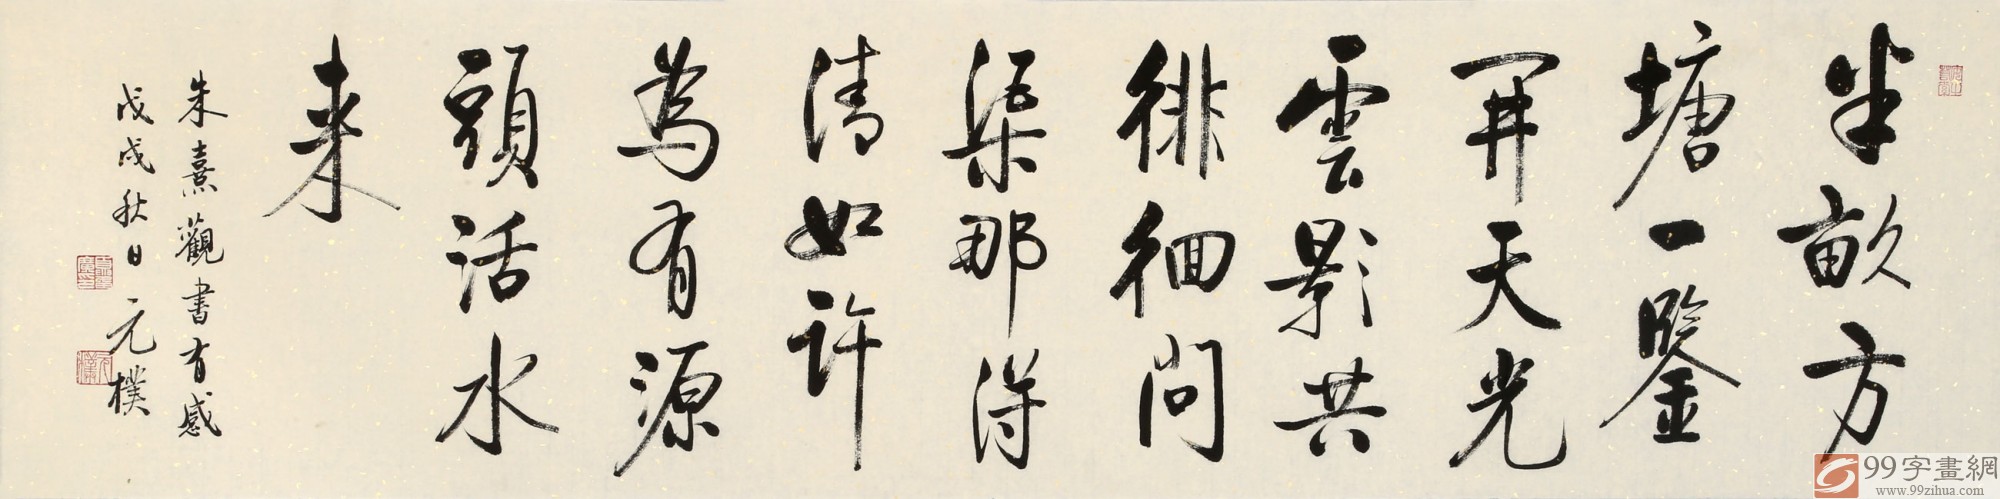 半畝方
塘一鑒
開天光
雲影共
徘徊問
渠那得
清如許
為有源
頭活水
来
朱熹觀書有感
戊戌秋日元樸
99字畫網
www.99zihua.com